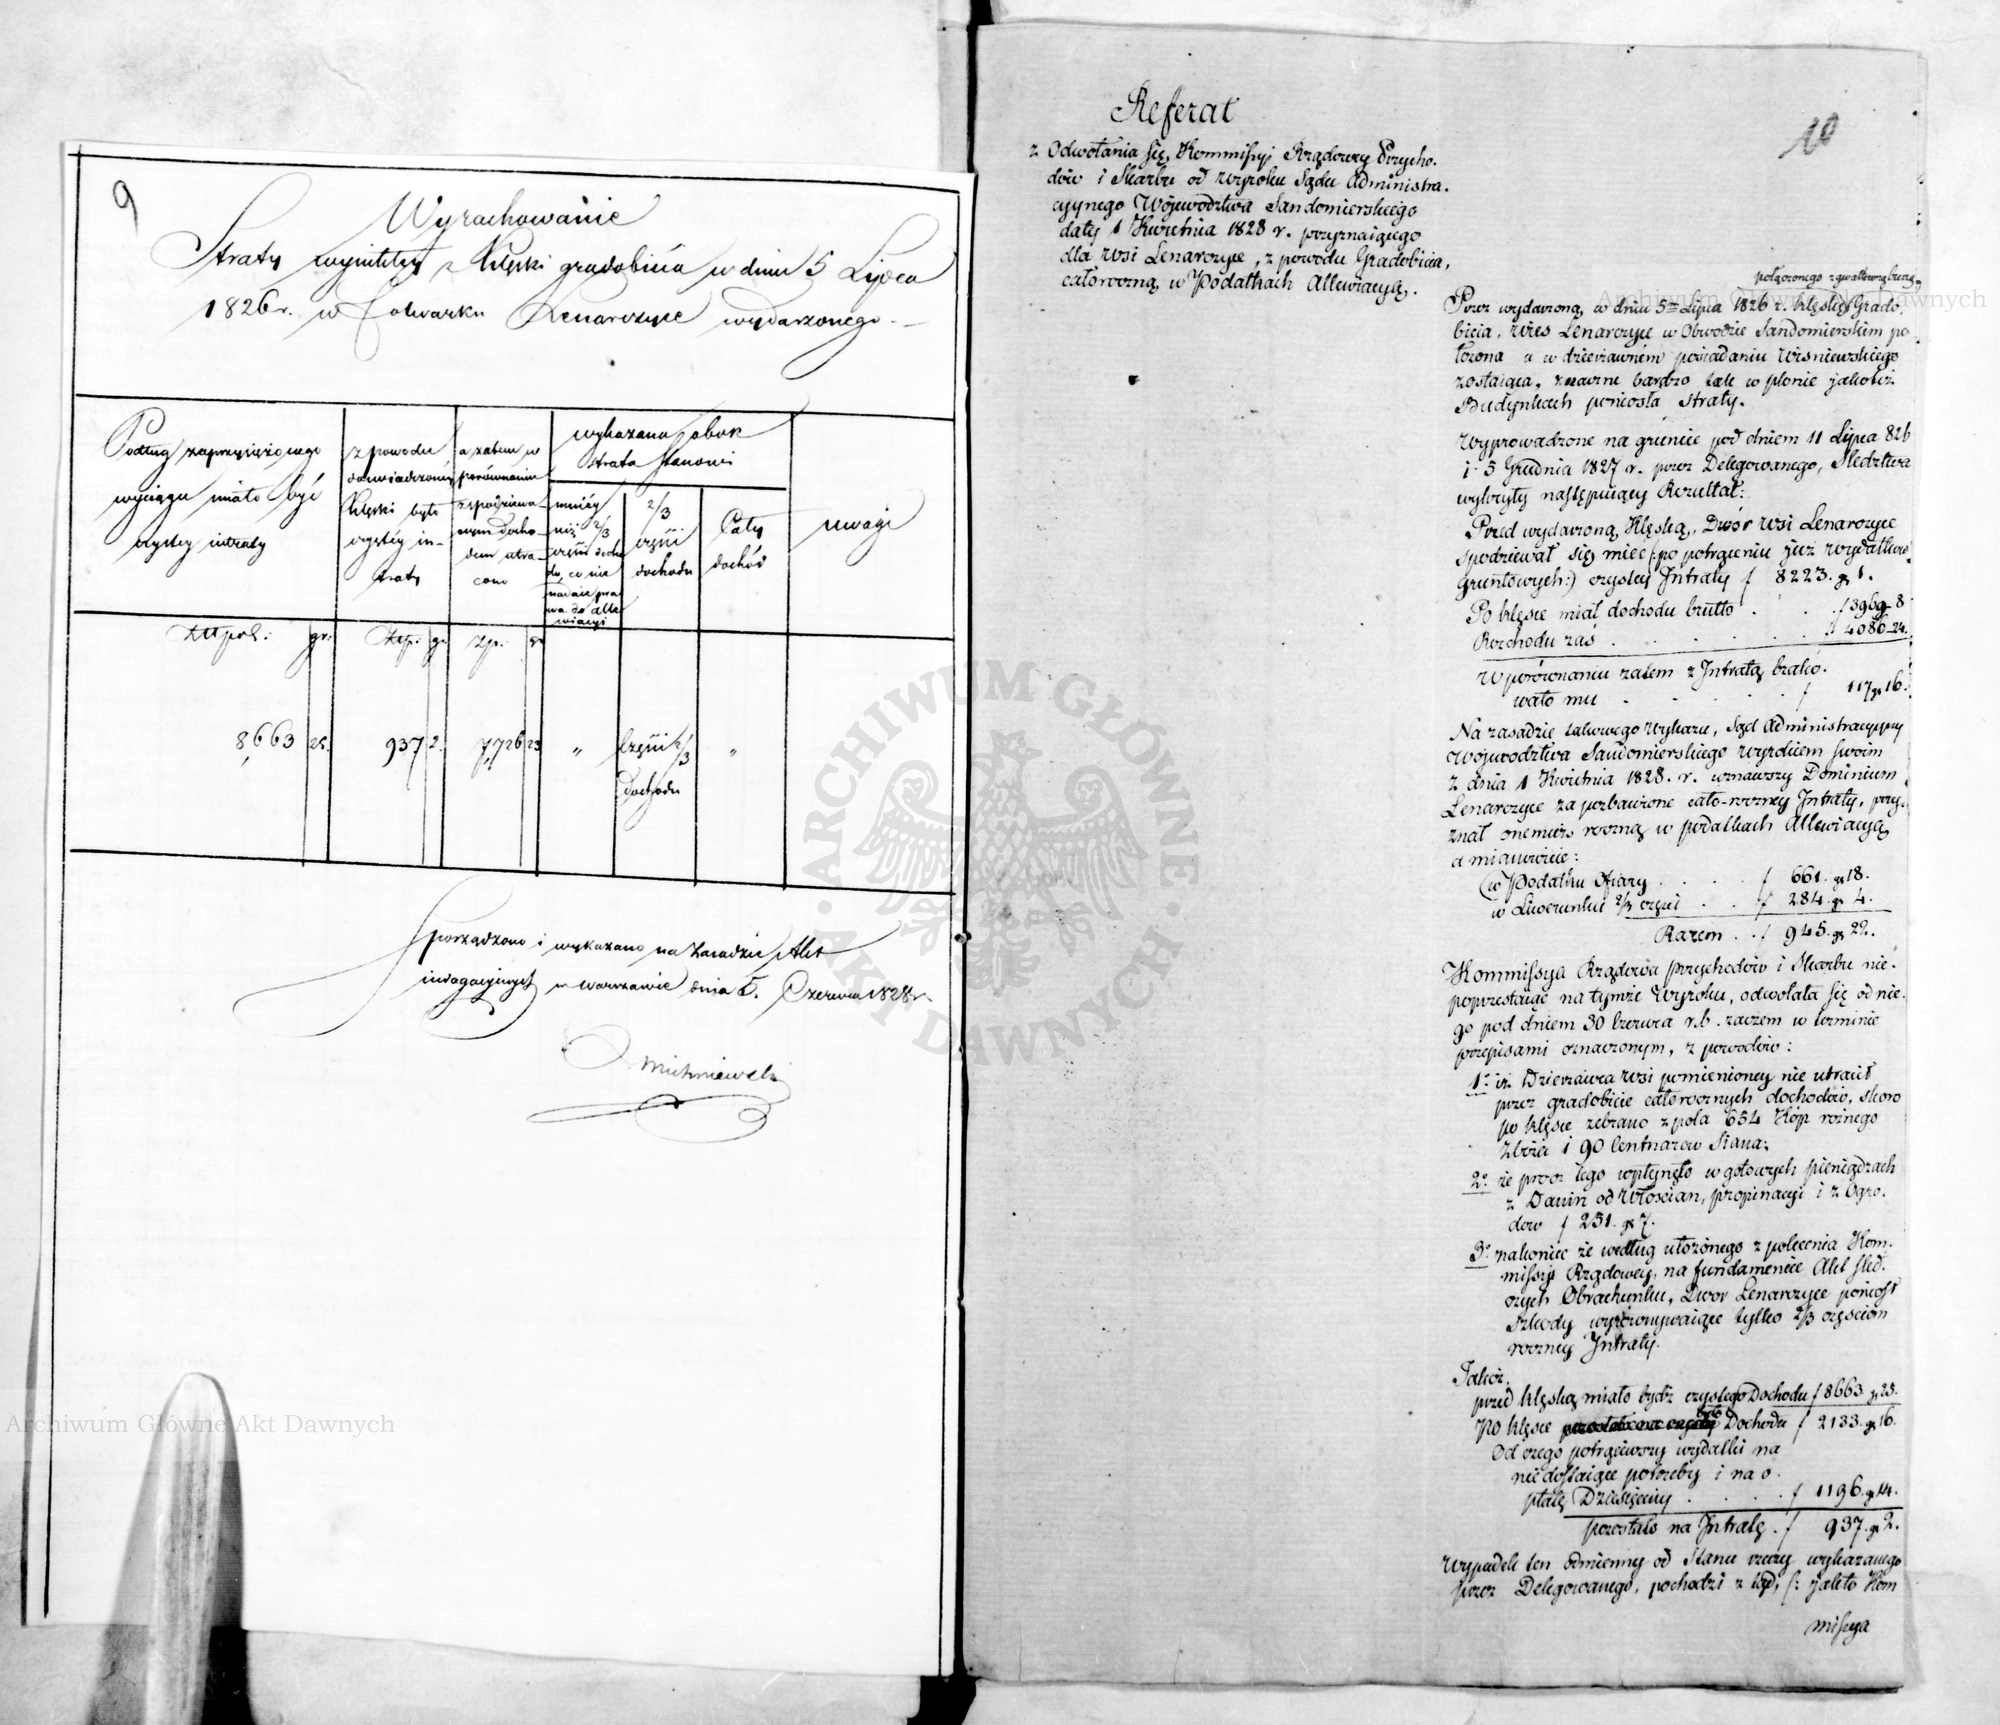 9
Wyrachowanie
Straty wynikłey z Klęski gradobicia w dniu 5 Lipca
1826 r. w Folwarku Lenarczyce wydarzonego. —
Podług zaprzysiężonego
wyciągu miało być
czystey intraty
z powodu
doświadczoney
Klęski było
czystey in-
traty
a zatem w
porównaniu
z spodziewa-
nym docho-
dem utra-
cono
wykazana obok
strata stanowi
mniéy
niż 2/3
części docho
du, co nie
nadaie pra
wa do alle
wiacyi
2/3
części
dochodu
Cały
dochód
uwagi
Złt pol: gr: Złp: gr Zp: gr
8,663 25. 937 2. 7,726 23 " części 2/3 "
dochodu
Sporządzono i wykazano na zasadzie Akt
indagacyinych w Warszawie dnia 5. Czerwca 1828 r.
Michniewski
10
Referat
z Odwołania się, Kommissyi Rządowey Przycho-
dów i Skarbu od wyroku Sądu Administra-
cyynego Województwa Sandomierskiego
daty 1 Kwietnia 1828 r. przyznaiącego
dla wsi Lenarczyce, z powodu Gradobicia,
całoroczną w Podatkach Allewiacyą.
połączonego z gwałtowną burzą,
Przez wydarzoną, w dniu 5tm Lipca 1826 r. klęskę Grado-
bicia, wieś Lenarczyce w Obwodzie Sandomierskim po-
łożona a w dzierżawném posiadaniu Wiśniewskiego
zostaiąca, znaczne bardzo tak w plonie jakoteż
Budynkach poniosła straty.
Wyprowadzone na gruncie pod dniem 11 Lipca 826
i 5 Grudnia 1827 r. przez Delegowanego, Śledztwa
wykryły następuiący Rezultat:
Przed wydarzoną, Klęską, Dwór wsi Lenarczyce
spodziewał się mieć (:po potrąceniu już wydatków
Gruntowych:) czystey Intraty f 8223. gr 1.
Po klęsce miał dochodu brutto . . . f 3969 . 8
Rozchodu zaś . . . . . . . f 4086 . 24.
W porównaniu zatem z Intratą brako-
wało mu . . . . . f 117 gr 16.
Na zasadzie takowego Wykazu, Sąd Administracyyny
Województwa Sandomierskiego wyrokiem swoim
z dnia 1 Kwietnia 1828. r. uznawszy Dominium
Lenarczyce za pozbawione cało-roczney Intraty, przy-
znał onemuż roczną w podatkach Allewiacyą
a mianowicie:
w Podatku Ofiary . . . . f 661. gr 18.
w Liwerunku 2/3 części . . f 284. gr 4.
Razem . . f 945. gr 22.
Kommissya Rządowa Przychodów i Skarbu nie-
poprzestaiąc na tymże Wyroku, odwołała się od nie-
go pod dniem 30 Czerwca r.b. zaczem w terminie
przepisami oznaczonym, z powodów:
1° iż Dzierżawca wsi pomienioney nie utracił
przez gradobicie całorocznych dochodów, skoro
po klęsce zebrano z pola 654 Kóp rożnego
Zboża i 90 Centnarów Siana;
2° że prócz tego wpłynęło w gotowych pieniądzach
z Danin od Włościan, propinacyi i z Ogro-
dów f 251. gr 7.
3° nakoniec że według ułożonego z polecenia Kom-
missyi Rządowey, na fundamencie Akt śled-
czych Obrachunku, Dwór Lenarczyce poniosł
Szkody wyrównywaiące tylko 2/3 częściom
roczney Intraty.
Jakoż,
przed klęską miało bydź czystego Dochodu f 8663 gr 25.
Po klęsce było Dochodu f 2133. gr 16.
Od czego potrąciwszy wydatki na
niedostaiące potrzeby i na o-
płatę Dziesięciny . . . . f 1196. gr 14.
pozostało na Intratę . f 937. gr 2.
Wypadek ten odmienny od Stanu rzeczy wykazanego
przez Delegowanego, pochodzi z tąd, (: jak to Kom
missya
Archiwum Główne Akt Dawnych
Archiwum Główne Akt Dawnych
ARCHIWUM GŁÓWNE AKT DAWNYCH